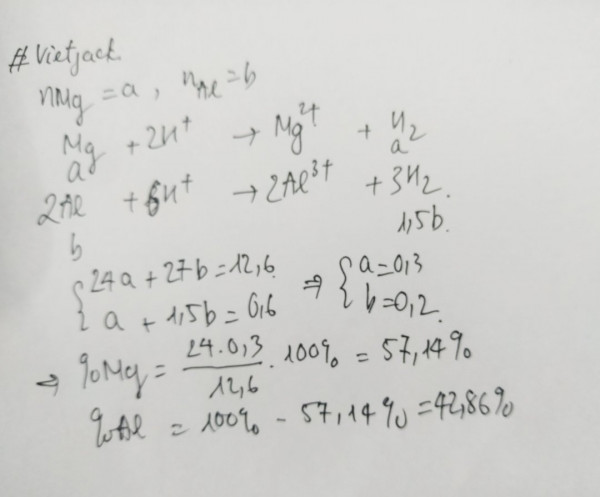 #Vietjack
nMg = a, nAl = b
Mg + 2H⁺ → Mg²⁺ + H₂
a a
2Al + 6H⁺ → 2Al³⁺ + 3H₂.
b 1,5b.
{24a + 27b = 12,6 ⇒ {a = 0,3
{a + 1,5b = 0,6 {b = 0,2.
⇒ %Mg = 24.0,3/12,6 . 100% = 57,14%
%Al = 100% - 57,14% = 42,86%